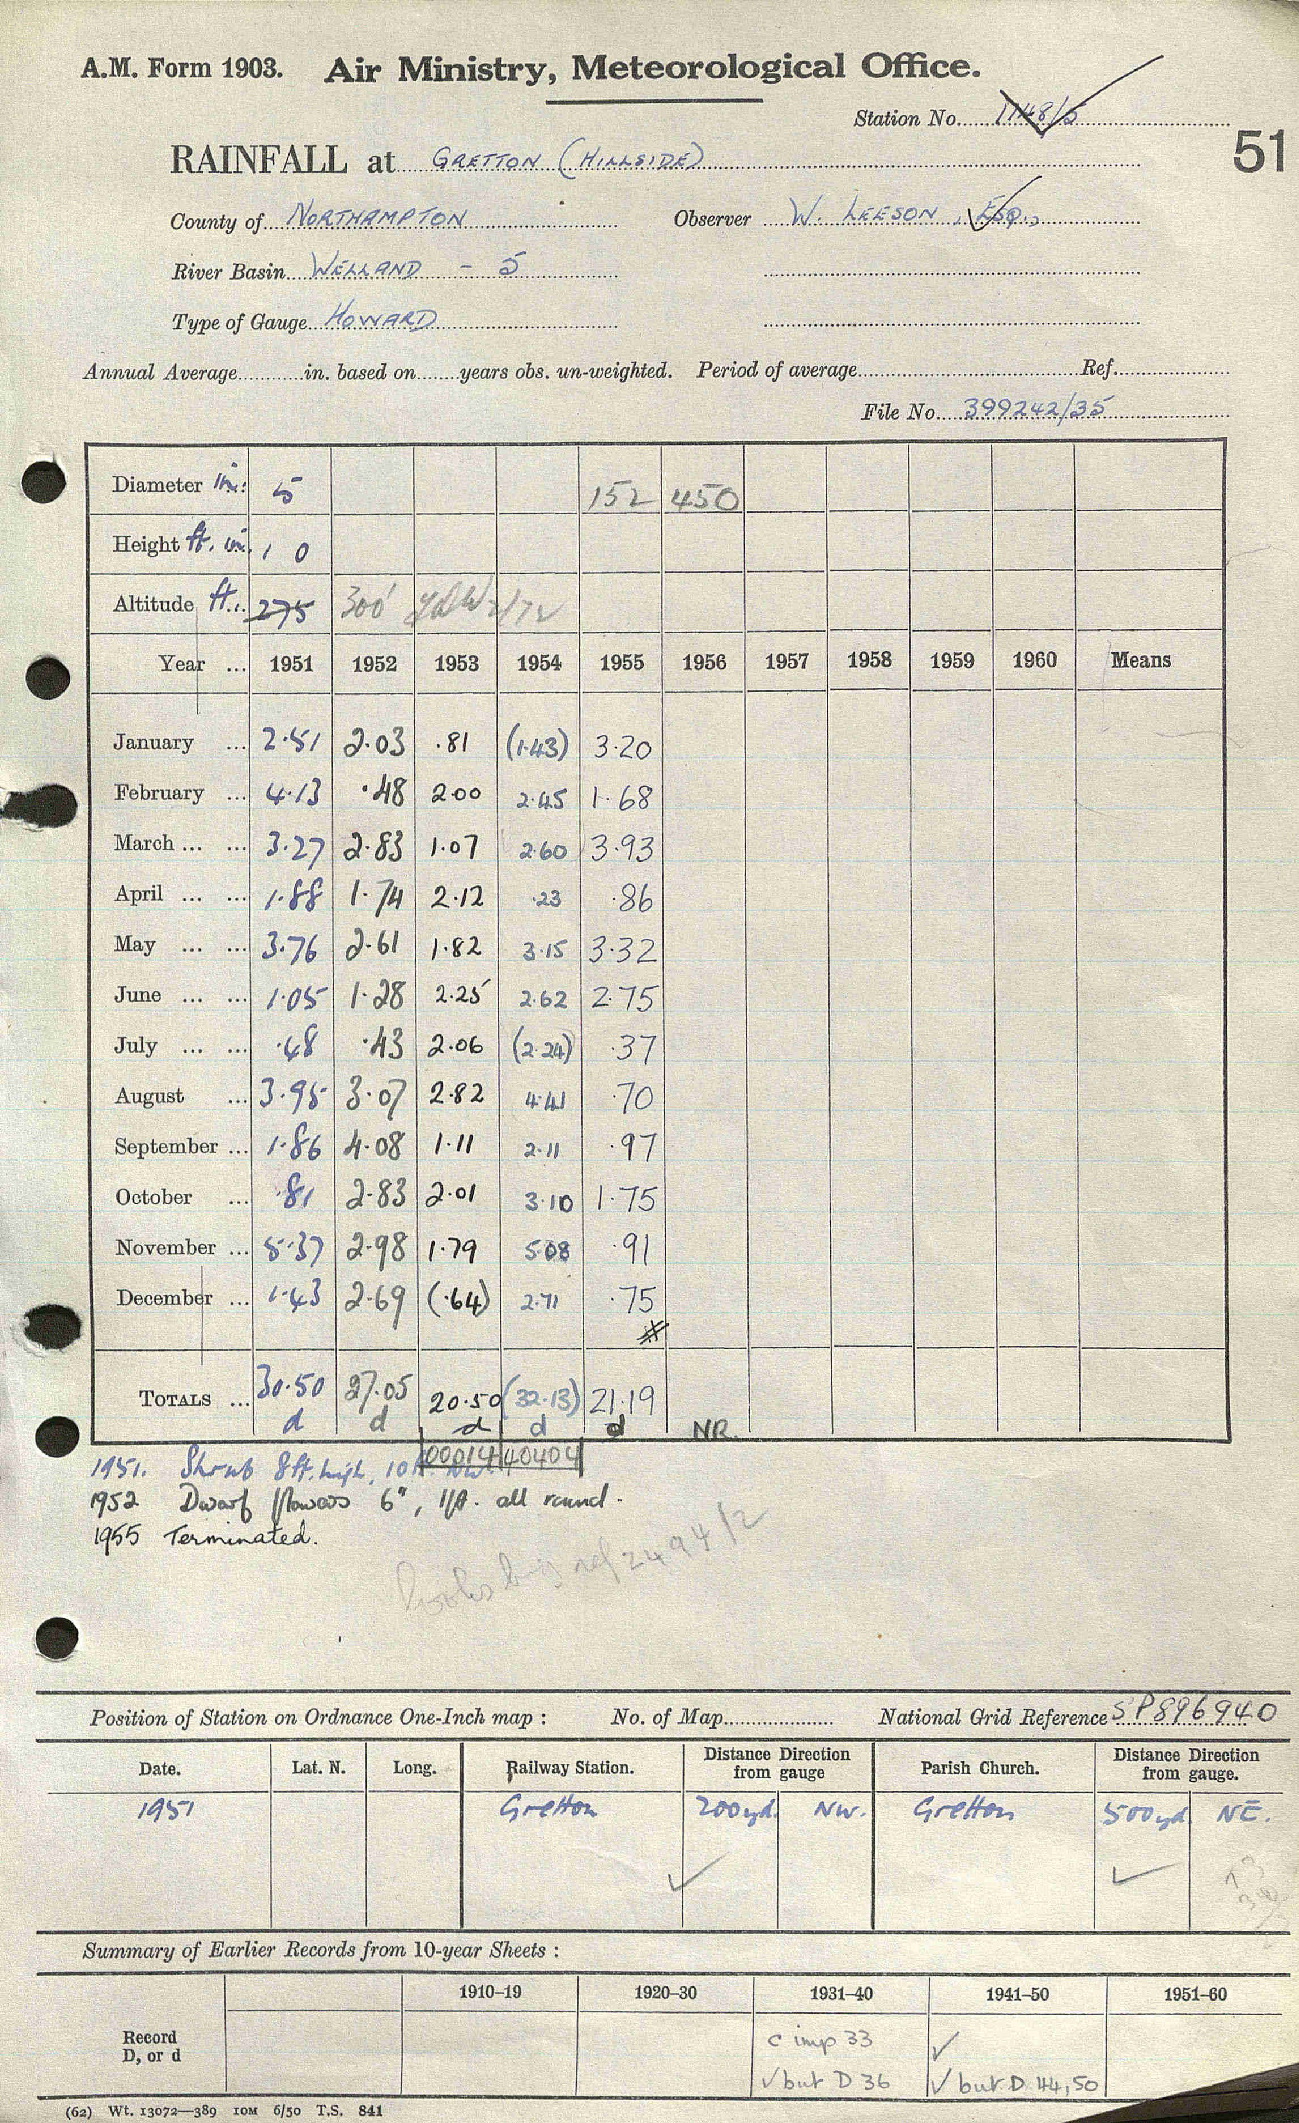 A.M. Form 1903. Air Ministry, Meteorological Office.
Station No. 1148/5
51
RAINFALL at GRETTON (HILLSIDE)
County of NORTHAMPTON Observer W. LEESON, ESQ.,
River Basin WELLAND - 5
Type of Gauge HOWARD
Annual Average in. based on years obs. un-weighted. Period of average Ref.
File No. 399242/35
Diameter in: 5 152 450
Height ft. in. 1 0
Altitude ft. 275 300' 2/72
Year ... 1951 1952 1953 1954 1955 1956 1957 1958 1959 1960 Means
January ... 2.51 2.03 .81 (1.43) 3.20
February ... 4.13 .48 2.00 2.45 1.68
March ... ... 3.27 2.83 1.07 2.60 3.93
April ... ... 1.88 1.74 2.12 .23 .86
May ... ... 3.76 2.61 1.82 3.15 3.32
June ... ... 1.05 1.28 2.25 2.62 2.75
July ... ... .48 .43 2.06 (2.24) .37
August ... 3.95 3.07 2.82 4.41 .70
September ... 1.86 4.08 1.11 2.11 .97
October ... .81 2.83 2.01 3.10 1.75
November ... 5.37 2.98 1.79 5.08 .91
December ... 1.43 2.69 (.64) 2.71 .75
TOTALS ... 30.50 27.05 20.50 (32.13) 21.19
d d d d d NR.
00014 40404
1951. Shrub 8ft. high, 10ft. NW.
1952 Dwarf flowers 6", 1ft. all round.
1955 Terminated.
2494/2
Position of Station on Ordnance One-Inch map : No. of Map National Grid Reference SP896940
Date. Lat. N. Long. Railway Station. Distance Direction from gauge Parish Church. Distance Direction from gauge.
1951 Gretton 200yd. NW. Gretton 500yd NE.
Summary of Earlier Records from 10-year Sheets :
1910–19 1920–30 1931–40 1941–50 1951–60
Record D, or d
c imp 33 ✓
✓ but D 36 ✓ but D 44, 50
(62) Wt. 13072—389 IOM 6/50 T.S. 841